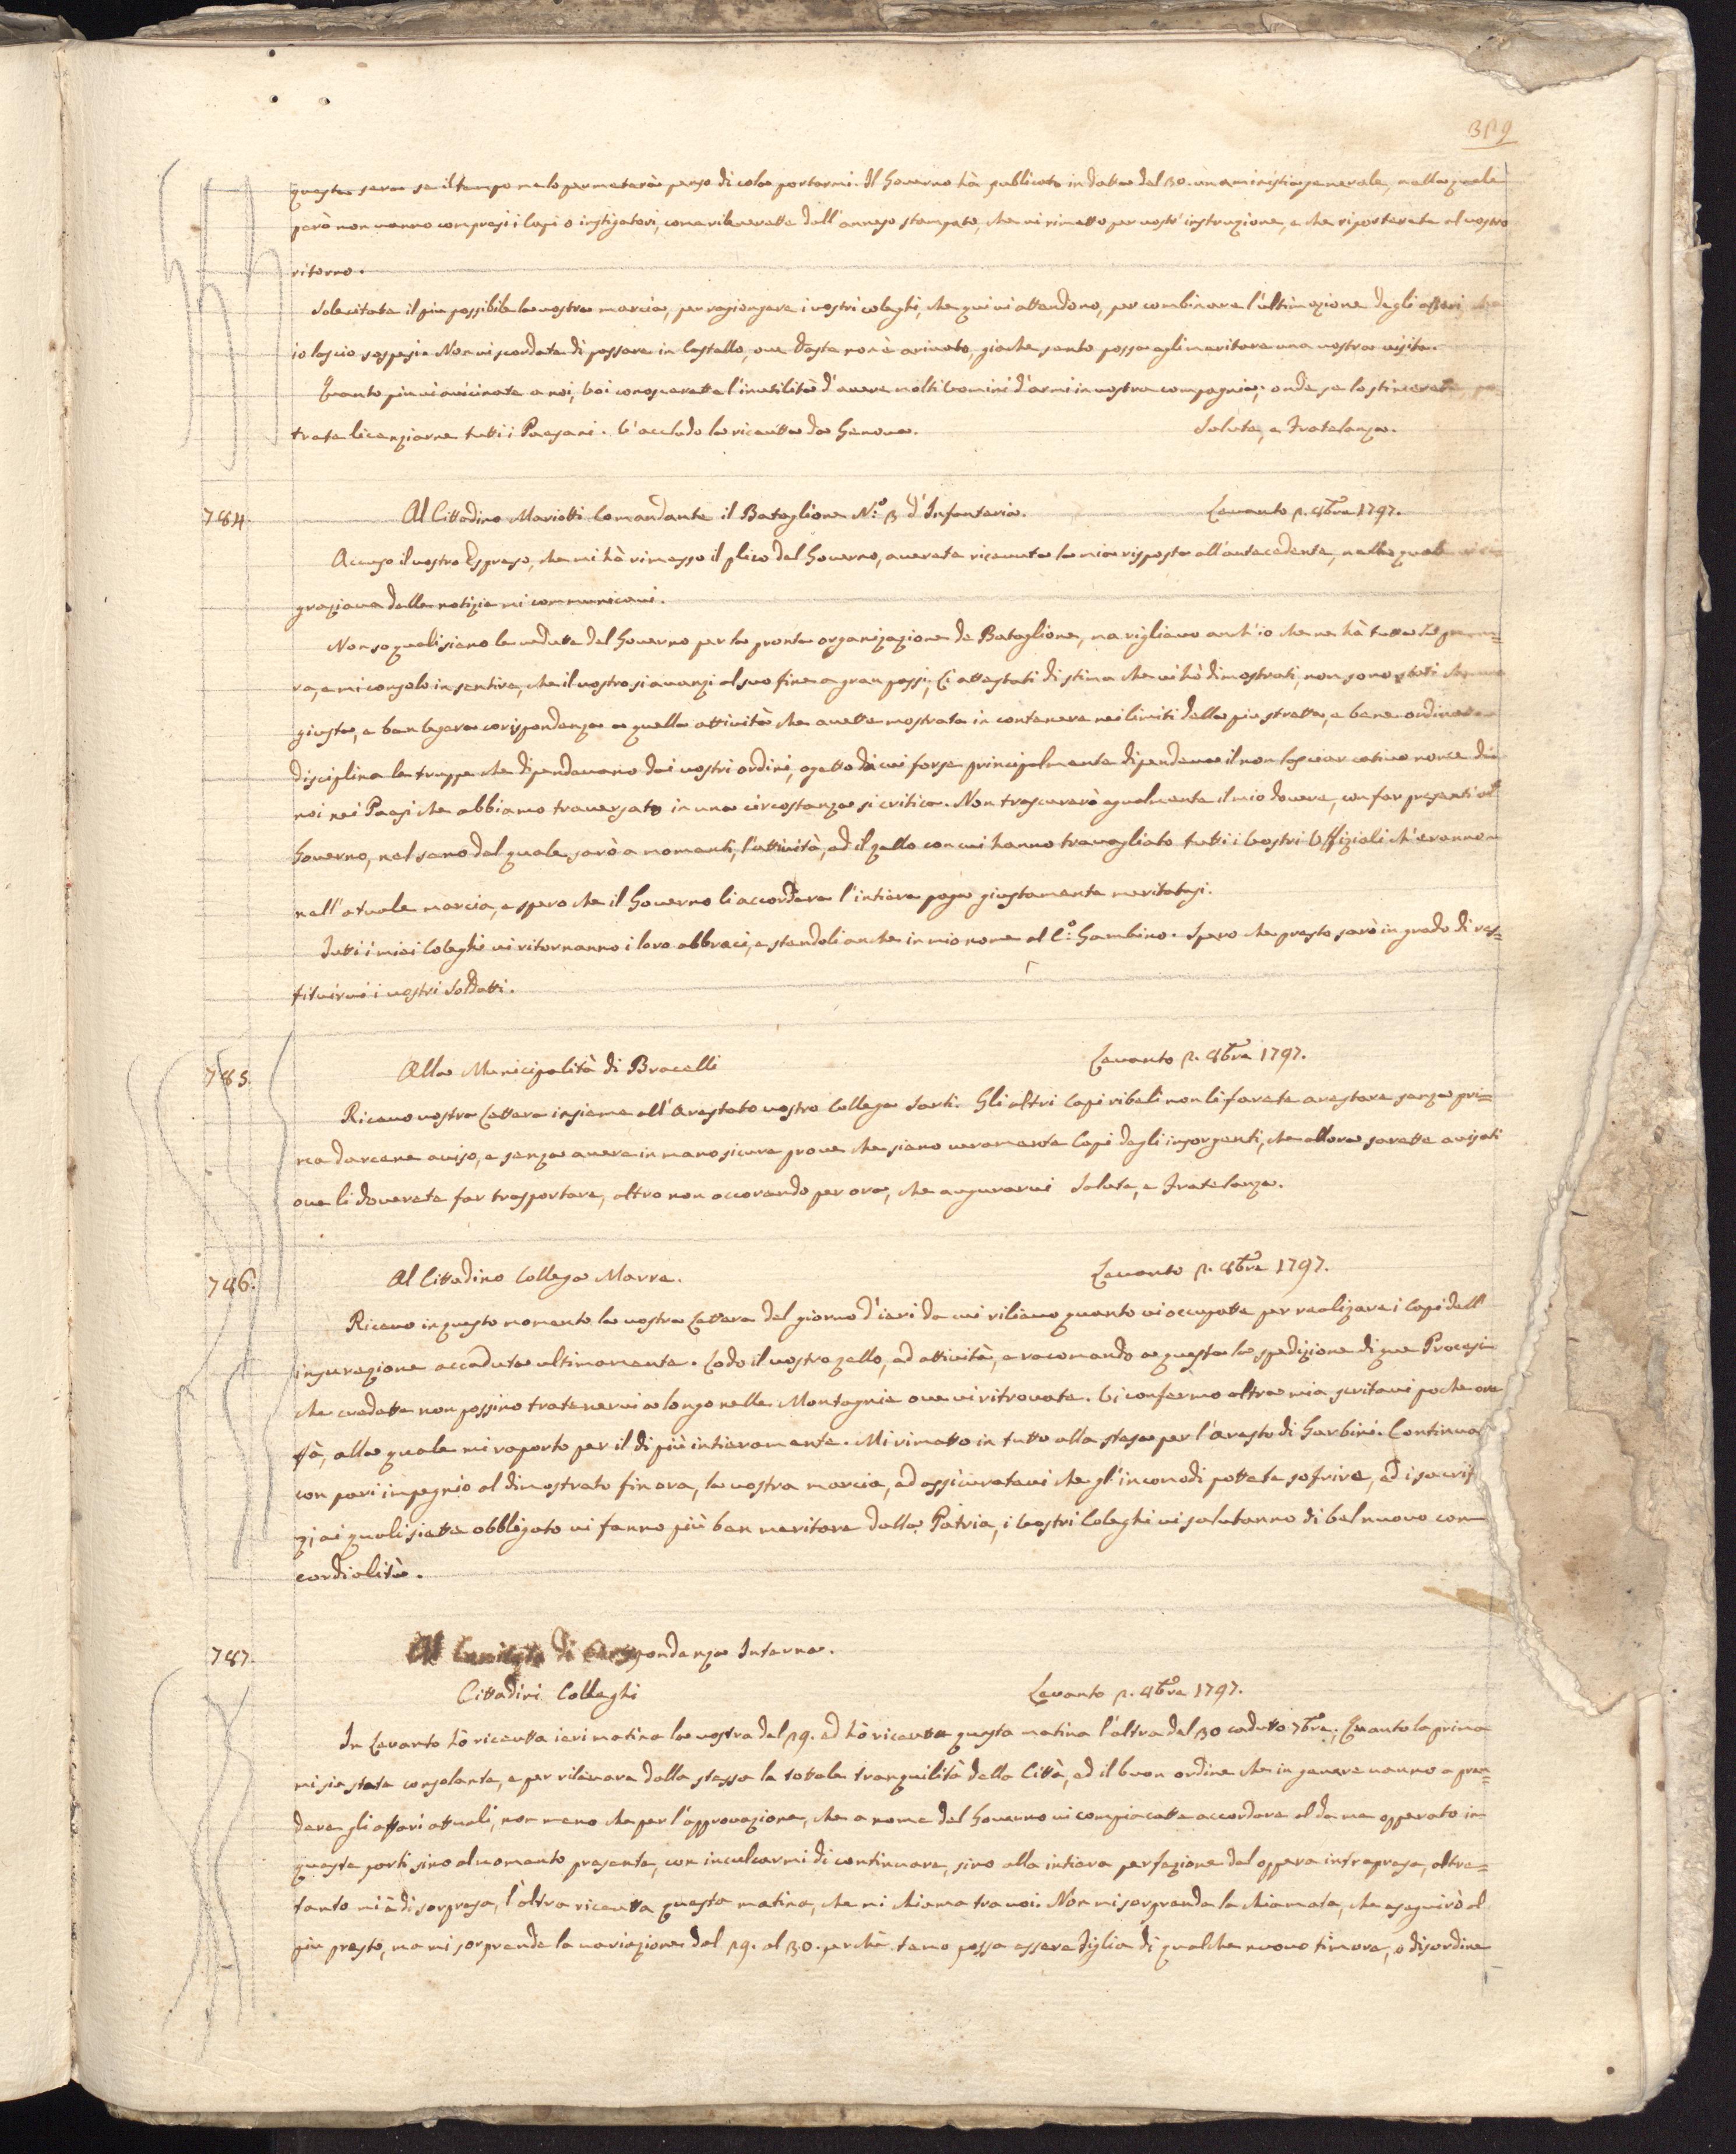 questa sera se il tempo me lo permetterà penso di colà portarmi. Il Governo hà publicato in data del 30. un aministia generale, nella quale
però non vanno compresi i Capi o instigatori, come rileverette dall'annesso stampato, che vi rimetto per vostr'instruzione, e che riporterete al vostro
ritorno.
Solecitate il più possibile la vostra marcia, per ragiongere i vostri coleghi, che quivi attendono, per combinare l'ultimazione degli affari, che
io lascio sospesi. Non vi scordate di passare in Castello, ove Doste non è arivato, giache sento possa egli meritare una vostra visita.
Quanto più vi avicinate a noi, voi conoscerette l'inutilità d'avere molti uomini d'armi in vostra compagnia; onde se lo stimerete, po-
trete licenziarne tutti i Paesani. V'accludo la ricevuta da Genova. Salute, e Fratelanza.
784. Al Cittadino Mariotti Comandante il Bataglione N.o 3 d'Infanteria. Levanto 2. 8bre 1797.
Accuso il vostro Espresso, che mi hà rimesso il plico del Governo, averete ricevuta la mia risposta all'antecedente, nella quale vi rin
graziava delle notizie mi communicavi.
Non so quali siano le vedute del Governo per la pronta organizazione de Bataglione, ma rigliavo anch'io che ne hà tutta la premu=
ra, e mi consolo in sentire, che il vostro si avanzi al suo fine a gran passi; Li attestati di stima che vi hò dimostrati, non sono stati che una
giusta, e ben legera corispondenza a quella attività che avette mostrata in contenere nei limiti della più stretta, e bene ordinata
disciplina le truppe che dipendevano dai vostri ordini, ogetto da cui forse principalmente dipendeva il non lasciar cativo nome di
noi nei Paesi che abbiamo traversato in una circostanza si critica. Non trascurerò egualmente il mio dovere, con far presenti al
Governo, nel seno dal quale sarò a momenti, l'attività, ed il zello con cui hanno travagliato tutti i vostri Uffiziali ch'eranno
nell'atuale marcia, e spero che il Governo li accorderà l'intiera paga giustamente meritatasi.
Tutti i miei Coleghi vi ritornanno i loro abbraci, e stendeli anche in mio nome al C.o Gambino. Spero che presto sarò in grado di res=
tituirvi i vostri Soldatti.
785. Alla Municipalità di Bracelli Levanto 2. 8bre 1797.
Ricevo vostra Lettera insieme all'Arestato vostro Collega Sarti. Gli altri Capi ribeli non li farete arestare senza pri=
ma darcene aviso, e senza avere in mano sicure prove che siano veramente Capi degli insorgenti, che allora sarette avisati
ove li doverete far trasportare, altro non occorendo per ora, che augurarvi Salute, e Fratelanza.
786. Al Cittadino Collega Marre. Levanto 2. 8bre 1797.
Ricevo in questo momento la vostra Lettera del giorno d'ieri da cui rilievo quanto vi occupatte per realizare i Capi dell'
insurezione accaduta ultimamente. Lodo il vostro zello, ed attività, e racomando a questa la spedizione di que Processi
che credette non possino tratenervi a longo nelle Montagnie ove vi ritrovate. Vi confermo altra mia scritavi poche ore
fà, alla quale mi raporto per il di più intieramente. Mi rimetto in tutto alla stessa per l'aresto di Garbini. Continuat
con pari impegnio al dimostrato fin ora, la vostra marcia, ed assicuratevi che gl'incomodi pottete sofrire, ed i sacrif
zj ai quali siette obbligato vi fanno più ben meritare dalla Patria, i vostri Coleghi vi salutanno di bel nuovo con
cordialità.
787. Al Comitato di Corispondenza Interna.
Cittadini Colleghi Levanto 2. 8bre 1797.
In Levanto hò ricevuta ieri matina la vostra del 29. ed hò ricevuta questa matina l'altra del 30 caduto 7bre; Quanto la prima
mi sia stata consolante, e per rilevare dalla stessa la tottale tranquilità della Città, ed il buon ordine che in genere vanno a pren=
dere gli affari attuali, non meno che per l'approvazione, che a nome del Governo vi compiacette accordare al da me opperato in
queste parti sino al momento presente, con inculcarmi di continuare, sino alla intiera perfezione del oppera intrapresa, altre=
tanto mi è di sorpresa, l'altra ricevuta questa matina, che mi chiama tra voi. Non mi sorprende la chiamata, che eseguirò al
più presto, ma mi sorprende la variazione dal 29. al 30. perchè temo possa essere figlia di qualche nuovo timore, o disordine